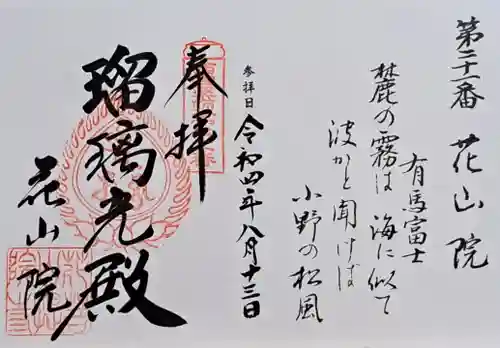 第二十一番 花山院
有馬富士
麓の霧は 海に似て
波かと聞けば
小野の松風
参拝日 令和四年八月十三日
奉拝
瑠璃光殿
花山院